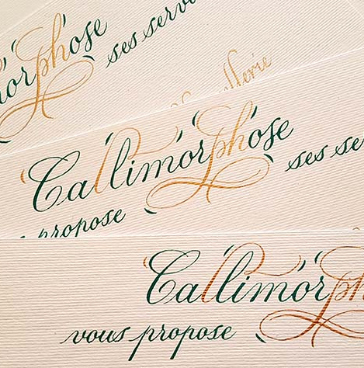 morphose
ses serv
Callimorphose
ses se
propose
Callimorph
vous propose